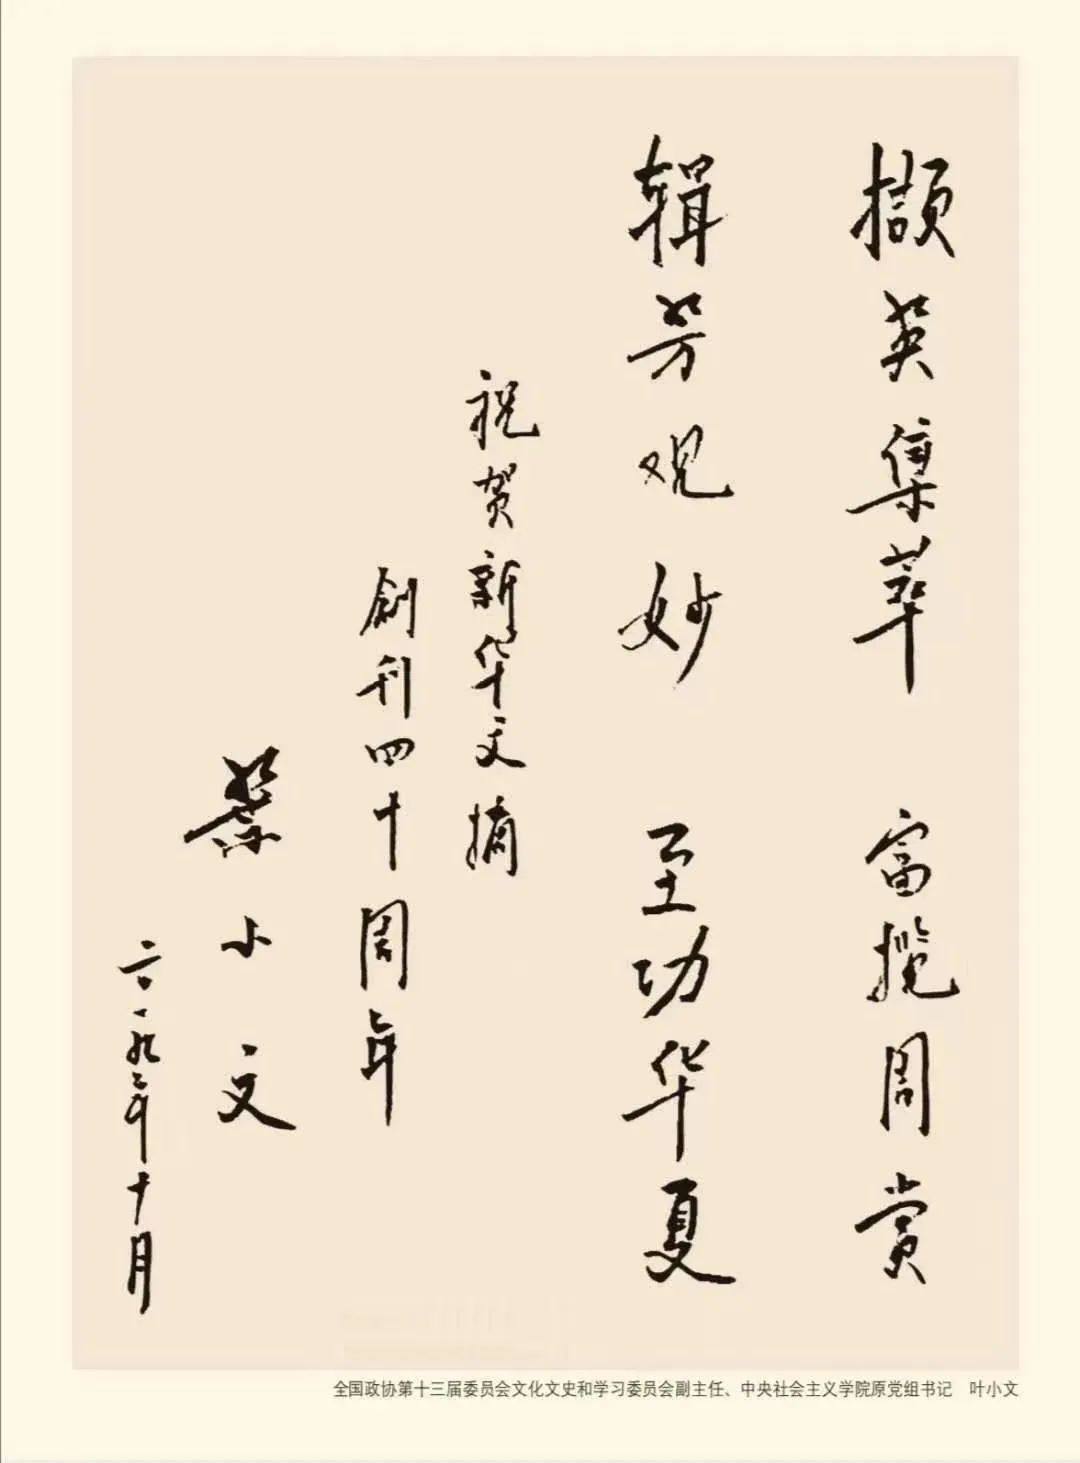 擷英集萃 富揽周赏
辑芳观妙 至功华夏
祝贺新华文摘
創刊四十周年
葉小文
二〇一九年十月
全国政协第十三届委员会文化文史和学习委员会副主任、中央社会主义学院原党组书记 叶小文